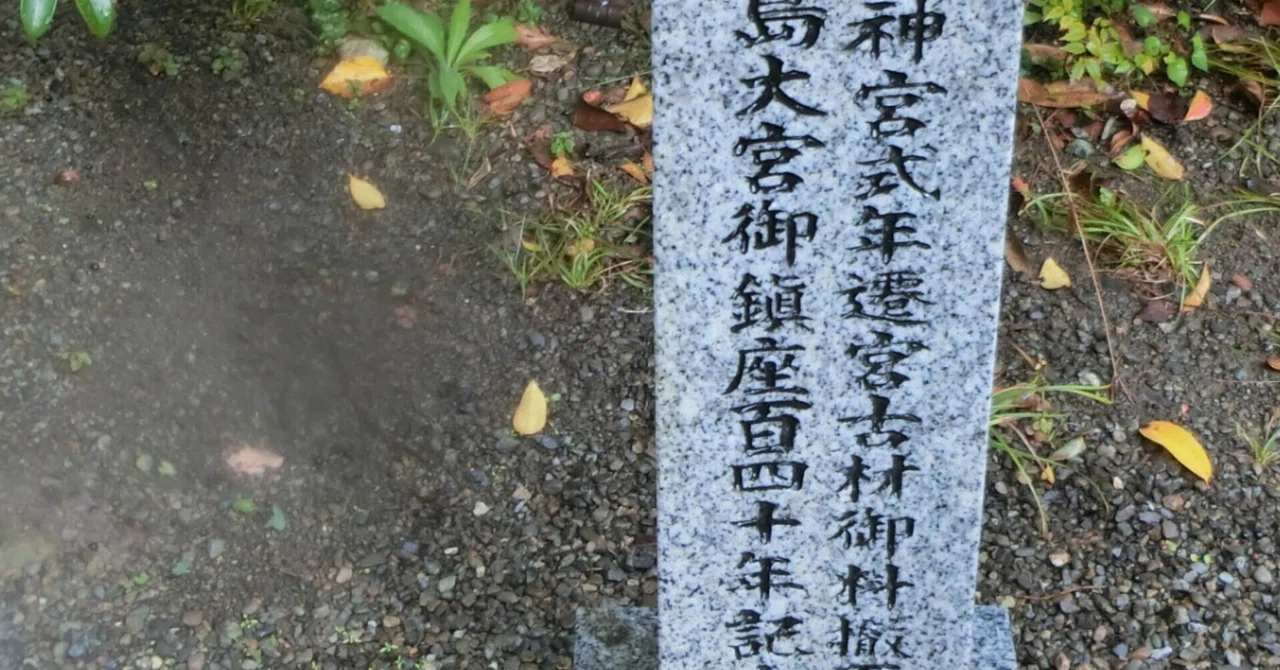 神宮式年遷宮古材御料撤
島大宮御鎮座百四十年記